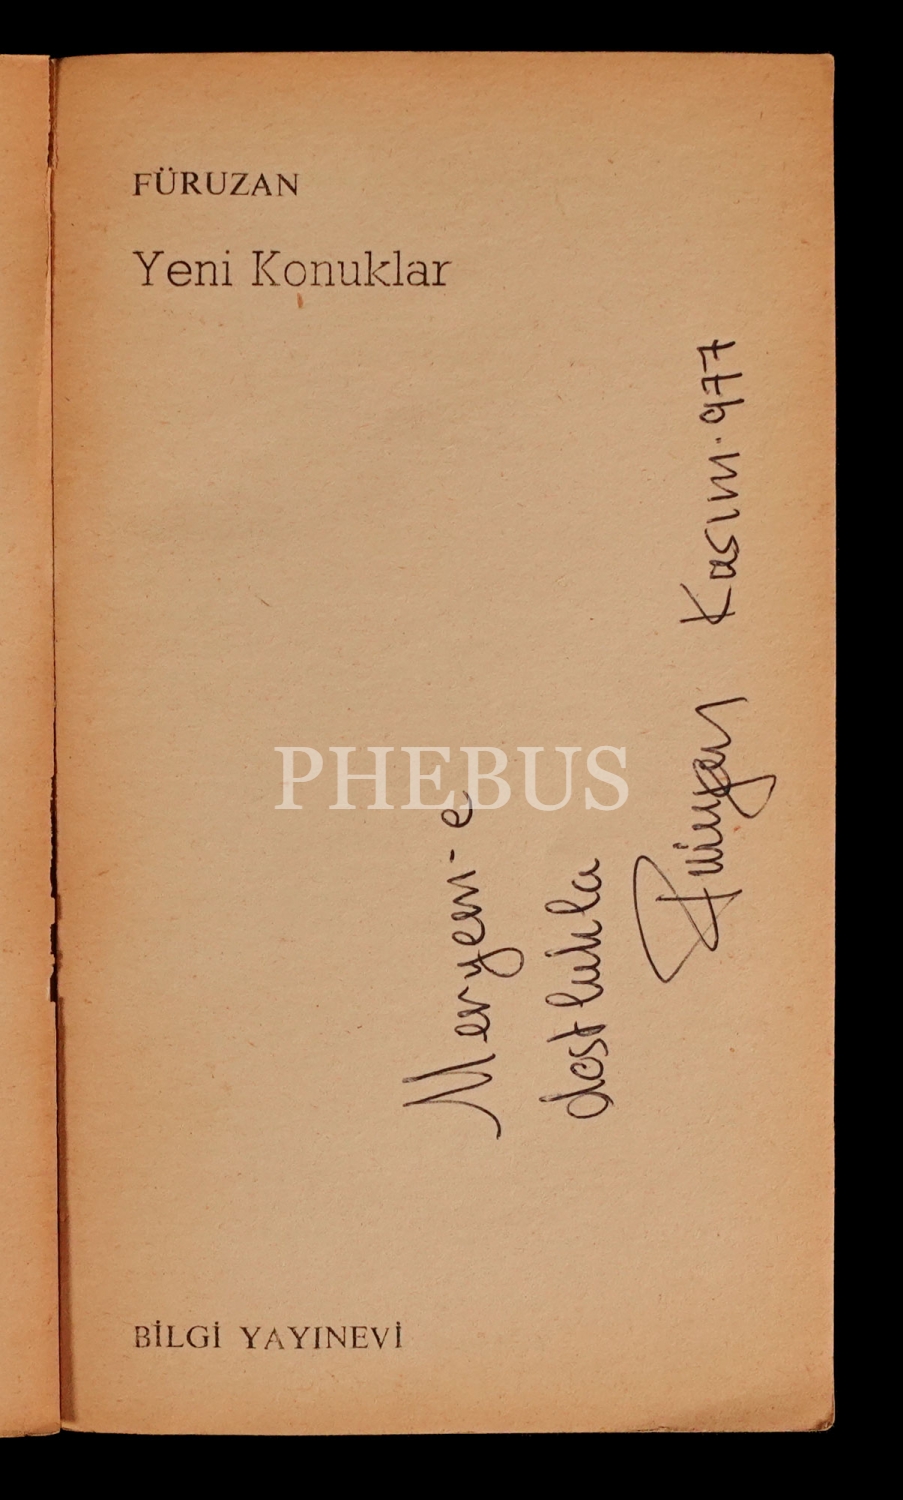 FÜRUZAN
Yeni Konuklar
PHEBUS
Meryem-e
dostlukla
Füruzan Kasım.977
BİLGİ YAYINEVİ